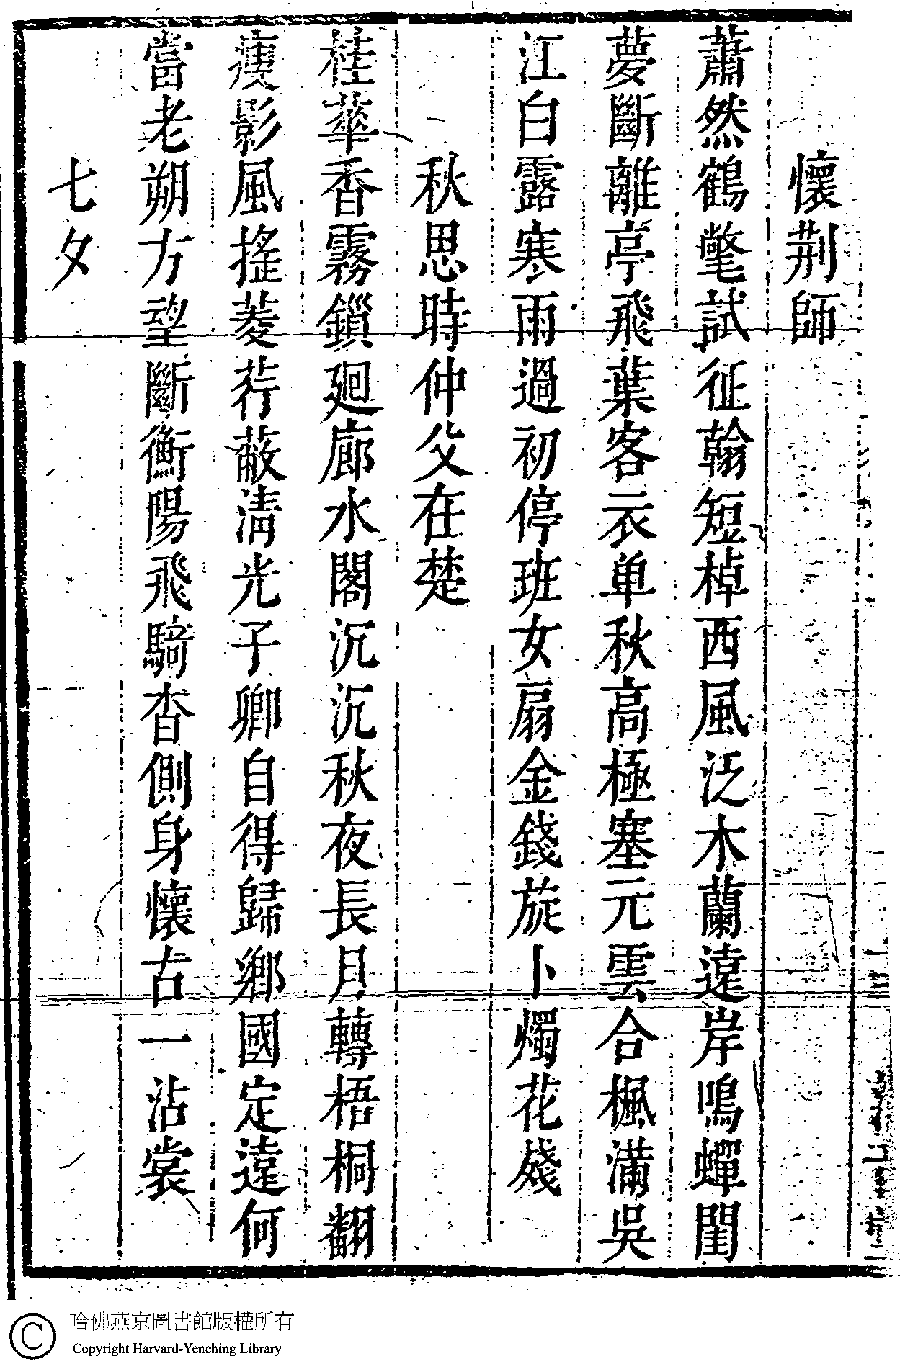 懷荆師
蕭然鶴氅試征翰短棹西風泛木蘭遠岸鳴蟬閨
夢斷離亭飛葉客衣单秋高極塞元雲合楓滿吳
江白露寒雨過初停班女扇金錢旋卜燭花殘
秋思時仲父在楚
桂華香霧鎖廻廊水閣沉沉秋夜長月轉梧桐翻
瘦影風搖菱荇蔽清光子卿自得歸鄉國定遠何
當老朔方望斷衡陽飛騎杳側身懷古一沾裳
七夕
哈佛燕京圖書館版權所有
Copyright Harvard-Yenching Library